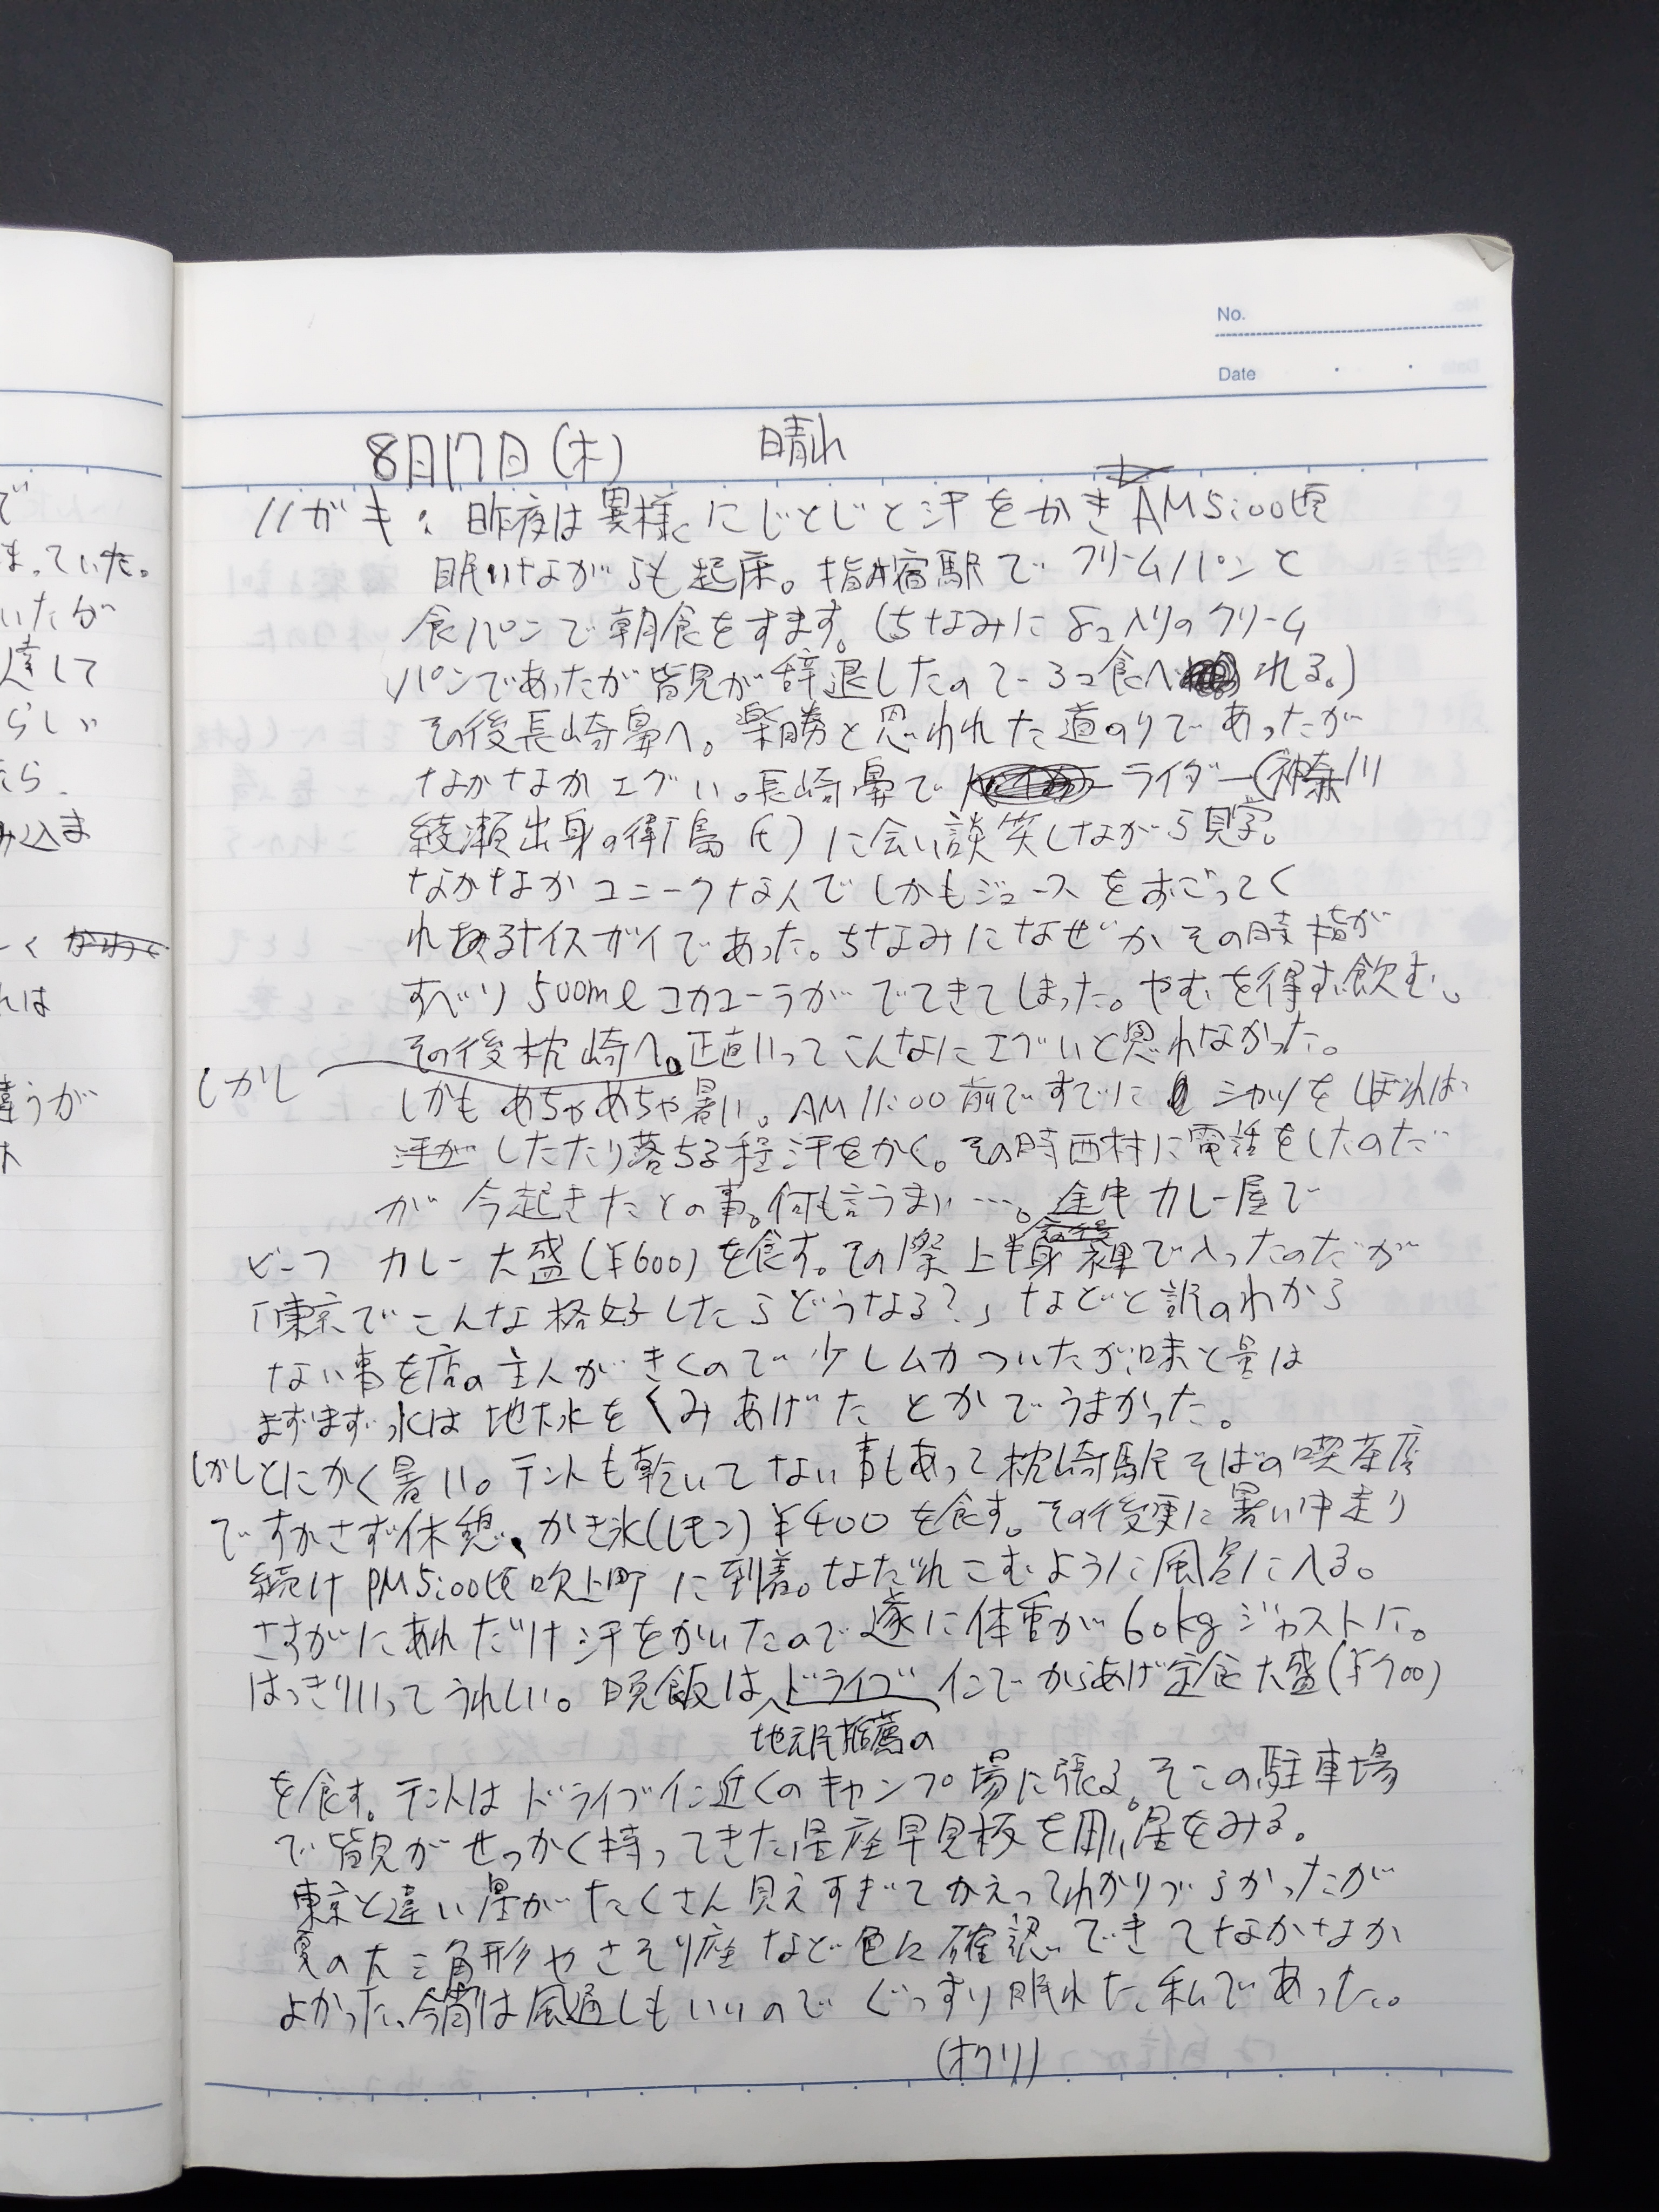 No.
Date
8月17日(木) 晴れ
ハガキ: 昨夜は異様にじとじと汗をかきAM5:00頃
眠いながらも起床。指宿駅でクリームパンと
食パンで朝食をすます。(ちなみに8コ入りのクリーム
パンであったが皆見が辞退したので3コ食べれる。)
その後長崎鼻へ。楽勝と思われた道のりであったが
なかなかエグい。長崎鼻でライダー(神奈川
綾瀬出身の衛島氏)に会い談笑しながら見学。
なかなかユニークな人でしかもジュースをおごってく
れるナイスガイであった。ちなみになぜかその時指が
すべり500mlコカコーラがでてきてしまった。やむを得ず飲む。
その後枕崎へ。正直いってこんなにエグいと思れなかった。
しかし
しかもめちゃめちゃ暑い。AM11:00前ですでにシャツをしぼれば
汗がしたたり落ちる程汗をかく。その時西村に電話をしたのだ
が今起きたとの事。何も言うまい…。途中カレー屋で
ビーフカレー大盛(¥600)を食す。その際上半身裸で入ったのだが
「東京でこんな格好したらどうなる?」などと訳のわから
ない事を店の主人がきくので少しムカついたが味と量は
まずまず水は地下水をくみあげたとかでうまかった。
しかしとにかく暑い。テントも乾いてない事もあって枕崎駅そばの喫茶店
ですかさず休憩、かき氷(レモン)¥400を食す。その後更に暑い中走り
続けPM5:00頃吹上町に到着。なだれこむように風呂に入る。
さすがにあれだけ汗をかいたので遂に体重が60kgジャストに。
はっきりいってうれしい。晩飯はドライブインでからあげ定食大盛(¥700)
地元民推薦の
を食す。テントはドライブイン近くのキャンプ場に張る。そこの駐車場
で皆見がせっかく持ってきた星座早見板を用い星をみる。
東京と違い星がたくさん見えすぎてかえってわかりづらかったが
夏の大三角形やさそり座など色々確認できてなかなか
よかった、今宵は風通しもいいのでぐっすり眠れた私であった。
(オクリ)